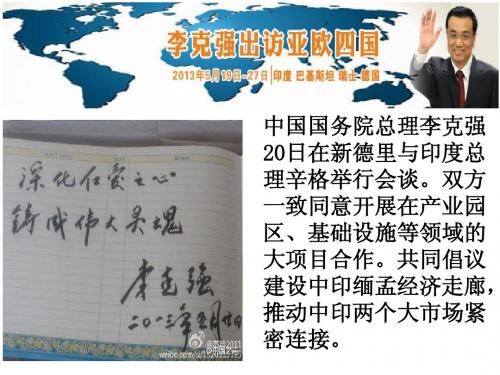 李克强出访亚欧四国
2013年5月19日-27日 | 印度 巴基斯坦 瑞士 德国
深化仁爱之心
铸成伟大灵魂
李克强
二〇一三年五月廿日
中国国务院总理李克强
20日在新德里与印度总
理辛格举行会谈。双方
一致同意开展在产业园
区、基础设施等领域的
大项目合作。共同倡议
建设中印缅孟经济走廊，
推动中印两个大市场紧
密连接。